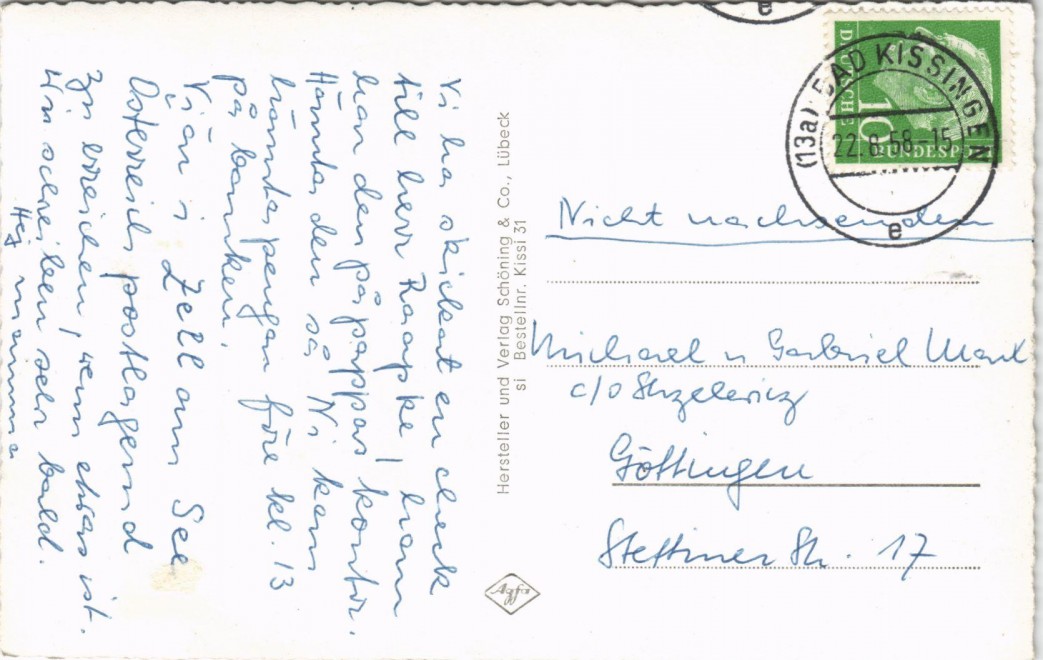 Vi har skickat en check
till herr Raapke, han
har den på pappas kontor.
Hämta den så Ni kan
hämta pengar före kl. 13
på banken.
Vi är i Zell am See
Österreich postlagernd
zu erreichen, wenn etwas ist.
Wir schreiben sehr bald.
Hej mamma
Hersteller und Verlag Schöning & Co., Lübeck
si Bestellnr. Kissi 31
Agfa
DEUTSCHE
BUNDESPOST
10
(13a) BAD KISSINGEN
22.8.58-15
e
e
Nicht nachsenden
Michael u Gabriel
c/o
Göttingen
Stettiner Str. 17